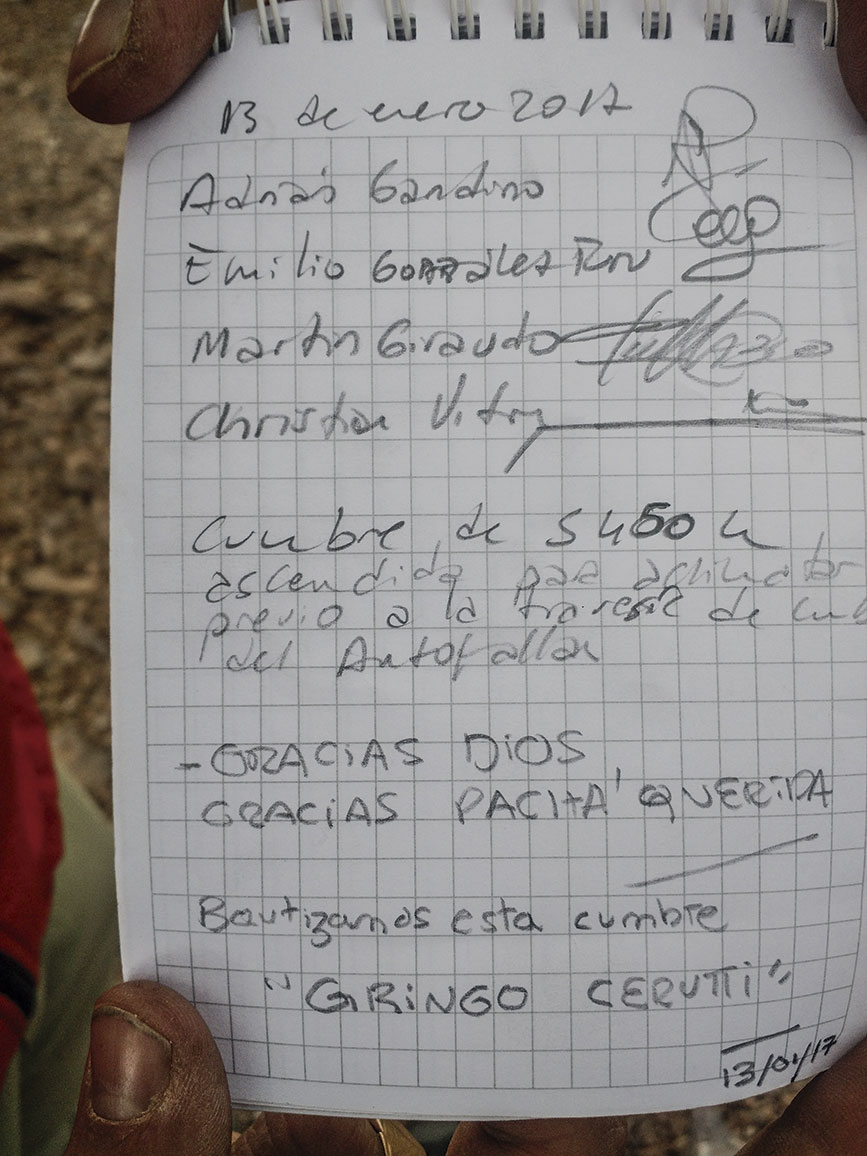 13 de enero 2017
Adrián Gandino
Emilio González
Martin Giraudo
Christian Vitry
Cumbre de 5450 m
ascendida para aclimatar
previo a la travesía de
del Antofallan
- GRACIAS DIOS
GRACIAS PACHA' QUERIDA
Bautizamos esta cumbre
"GRiNGO CERUTTi"
13/01/17